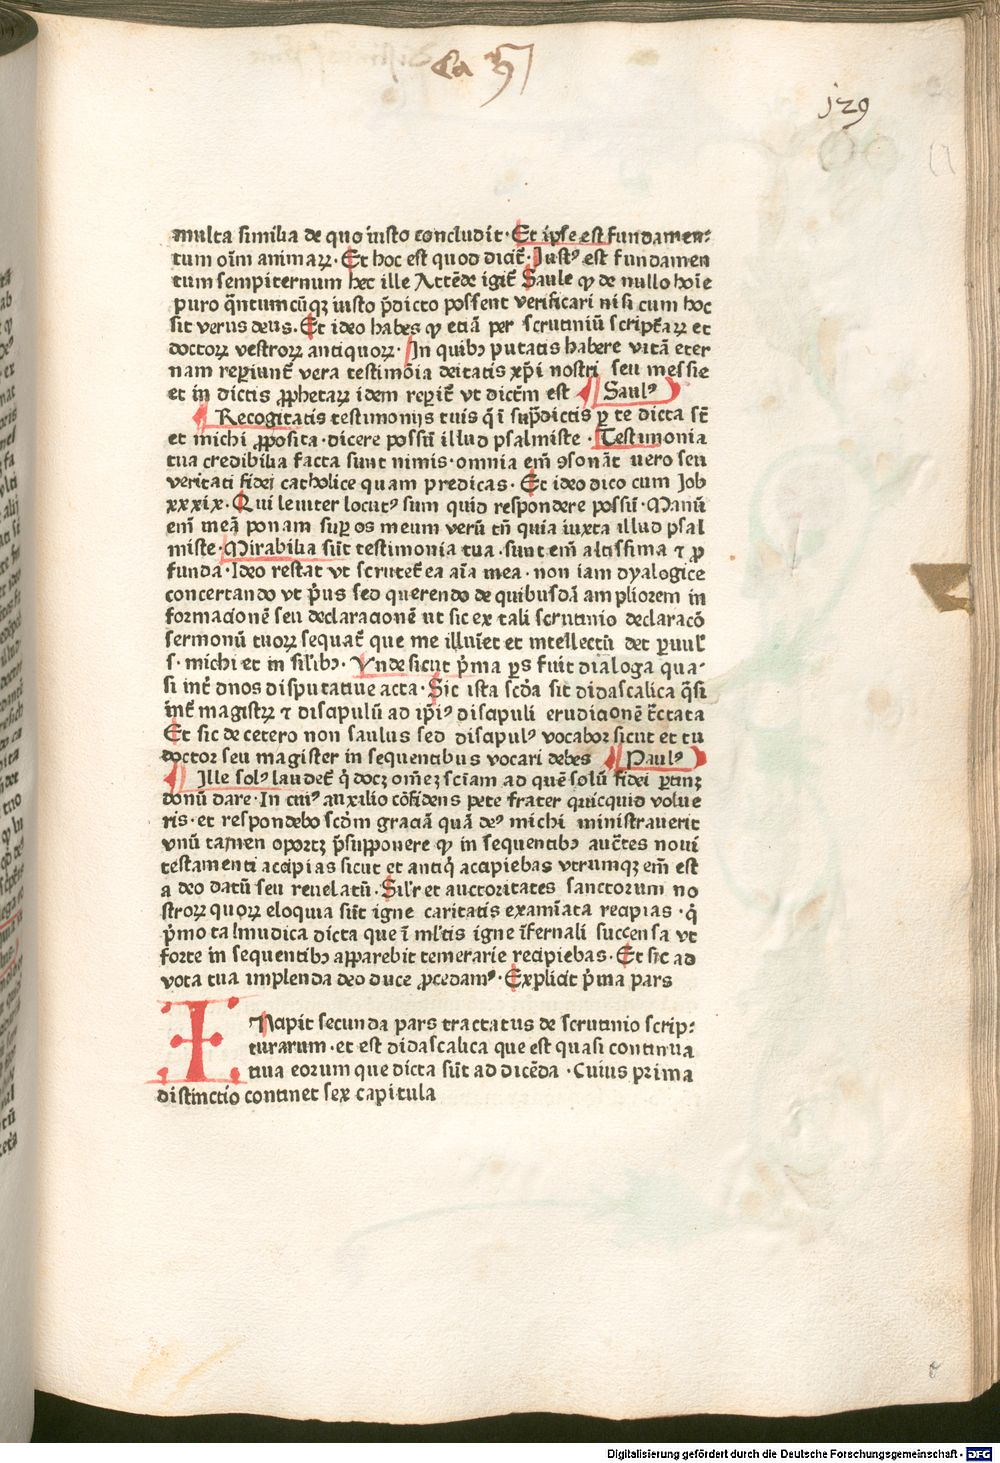 Ca
129
multa similia de quo iusto concludit· Et ipse est fundamen⸗
tum oīm animaꝝ. Et hoc est quod dicit̄· Justꝰ est fundamen
tum sempiternum hec ille Attēde igit̄ Saule ꝙ de nullo hoīe
puro q̄ntumcūqꝫ iusto p̄dicto possent verificari nisi cum hoc
sit verus deus. Et ideo habes ꝙ etiā per scrutiniū script̄aꝝ et
doctoꝝ vestroꝝ antiquoꝝ· In quibꝫ putatis habere vitā eter
nam reꝑiunt̄ vera testimōia deitatis xp̄i nostri seu messie
et in dictis ꝓphetaꝝ idem reꝑit̄ vt dictm̄ est Saulꝰ
Recogitatis testimonijs tuis q̄ ī sup̄dictis ꝑ te dicta st̄
et michi ꝓposita· dicere possū illud psalmiste · Testimonia
tua credibilia facta sunt nimis· omnia em̄ ꝯsonāt vero seu
veritati fidei catholice quam predicas· Et ideo dico cum Job
xxxix· Qui leuiter locutꝰ sum quid respondere possū· Manū
em̄ meā ponam suꝑ os meum verū tn̄ quia iuxta illud psal
miste· Mirabilia sūt testimonia tua· sunt em̄ altissima ⁊ ꝓ
funda· Ideo restat vt scrutet̄ ea aīa mea· non iam dyalogice
concertando vt p̄us sed querendo de quibusdā ampliorem in
formacionē seu declaracionē ut sic ex tali scrutinio declaracō
sermonū tuoꝝ sequat̄ que me illuīet et intellectū det ꝑuul̄
s· michi et in sil̄ibꝫ· Vnde sicut p̄ma ꝑs fuit dialoga qua⸗
si int̄ duos disputatiue acta· Sic ista scd̄a sit didascalica q̄si
int̄ magistꝝ ⁊ discipulū ad ip̄iꝰ discipuli erudicionē t̄ctata
Et sic de cetero non saulus sed discipulꝰ vocabor sicut et tu
doctor seu magister in sequentibus vocari debes Paulꝰ
Ille solꝰ laudet̄ q̄ docꝫ om̄eꝫ sciam ad quē solū fidei ꝑtinꝫ
donū dare· In cuiꝰ auxilio cōfidens pete frater quicquid volue
ris· et respondebo scdm̄ graciā quā deꝰ michi ministrauerit
vnū tamen oportꝫ p̄supponere ꝙ in sequentibꝫ auct̄es noui
testamenti accipias sicut et antiq̄ accipiebas vtrumqꝫ em̄ est
a deo datū seu reuelatū· Sil̄r et auctoritates sanctorum no
stroꝝ quoꝝ eloquia sūt igne caritatis examīata recipias · q̄
p̄mo talmudica dicta que ī ml̄tis igne īfernali succensa vt
forte in sequentibꝫ apparebit temerarie recipiebas· Et sic ad
vota tua implenda deo duce ꝓcedamꝰ· Explicit p̄ma pars
INcipit secunda pars tractatus de scrutinio scrip⸗
turarum· et est didascalica que est quasi continua
tiua eorum que dicta sūt ad dicēda · Cuius prima
distinctio continet sex capitula
Digitalisierung gefördert durch die Deutsche Forschungsgemeinschaft - DFG